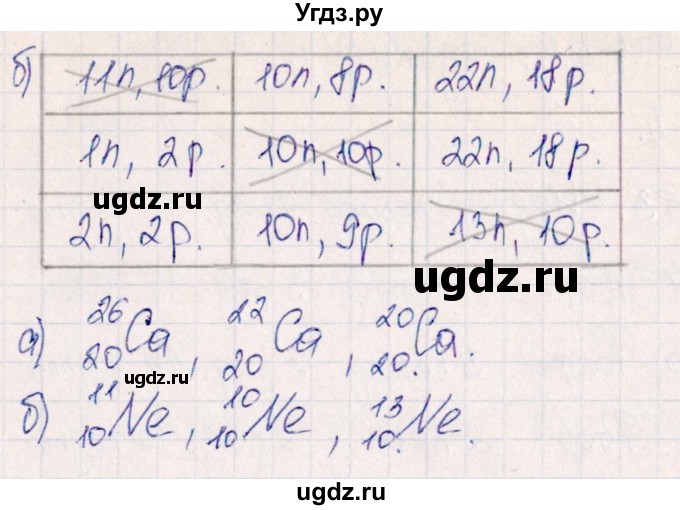 Угдз.ру
б) 11n, 10p. 10n, 8p. 22n, 18p.
1n, 2p. 10n, 10p. 22n, 18p.
ugdz.ru
2n, 2p. 10n, 9p. 13n, 10p.
ugdz.ru
а) ²⁶₂₀Ca, ²²₂₀Ca, ²⁰₂₀Ca.
ugdz.ru
б) ¹¹₁₀Ne, ¹⁰₁₀Ne, ¹³₁₀Ne.
ugdz.ru